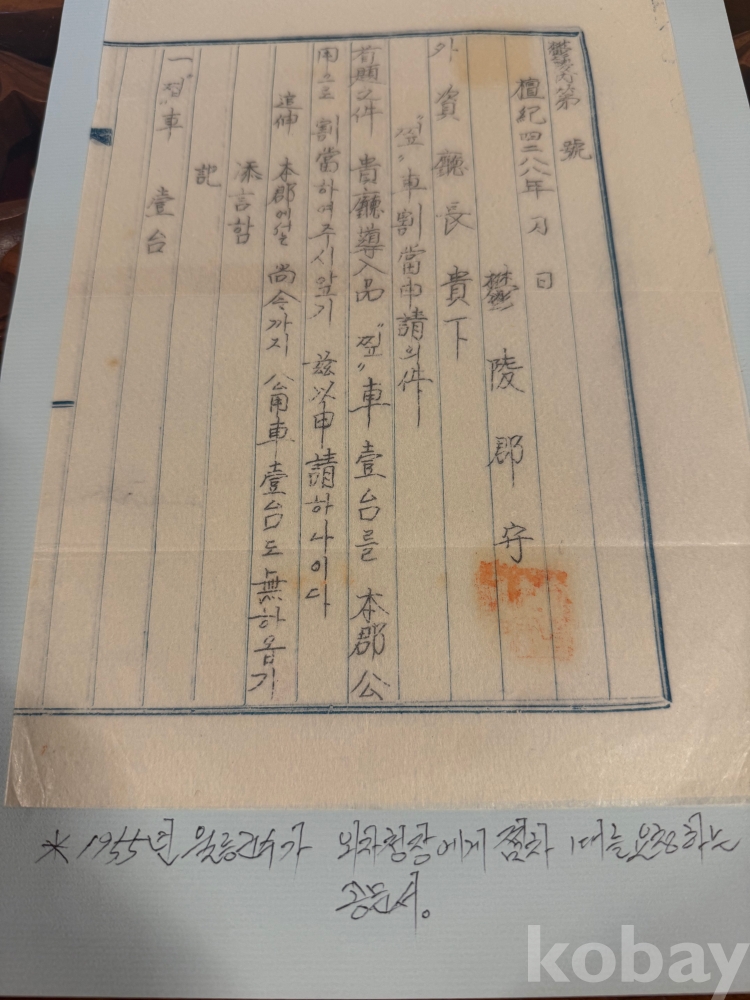 第　號
檀紀四二八八年　月　日
鬱陵郡守
外資廳長貴下
"찦"車割當申請의件
首題之件 貴廳導入品 "찦"車壹台를 本郡公
用으로 割當하여주시압기 玆以申請하나이다
追伸 本郡에선 尙今까지 公用車壹台도 無하옵기
添言함
記
一 "찦"車 壹台
※ 1955년 울릉군수가 외자청장에게 찝차 1대를 요청하는
공문서。
kobay